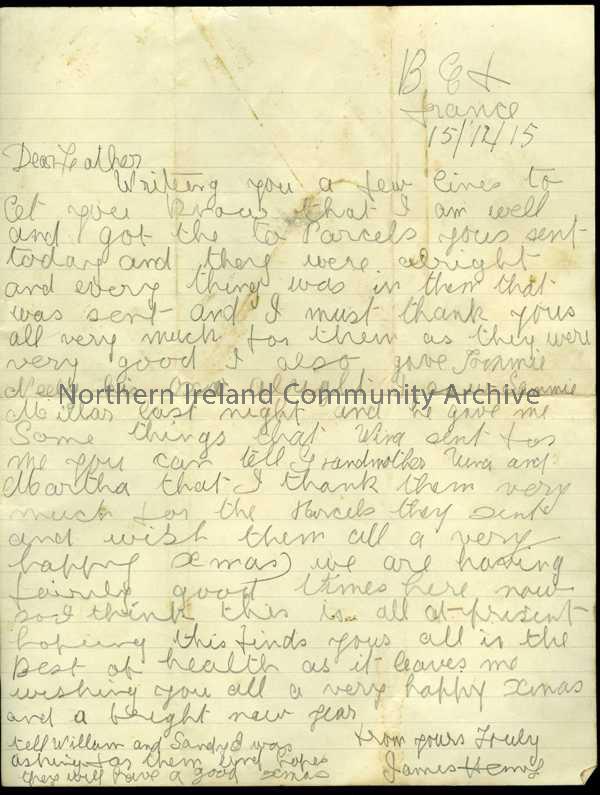 B E F
France
15/12/15
Dear Father
Writing you a few lines to
let you know that I am well
and got the to Parcels yous sent
today and they were alright
and every thing was in them that
was sent and I must thank yous
all very much for them as they were
very good I also gave Tommie
Northern Ireland Community Archive
Millar last night and he gave me
Some things that Wina sent for
me you can tell Grandmother and
Martha that I thank them very
much for the Parcels they sent
and wish them all a very
happy Xmas we are having
fairly good times here now
so I think this is all at present
hopeing this finds yous all in the
Best of health as it leaves me
wishing you all a very happy Xmas
and a bright new year
from yours Truly
James Henry
tell William and Sandy I was
asking for them and hopes
they will have a good xmas